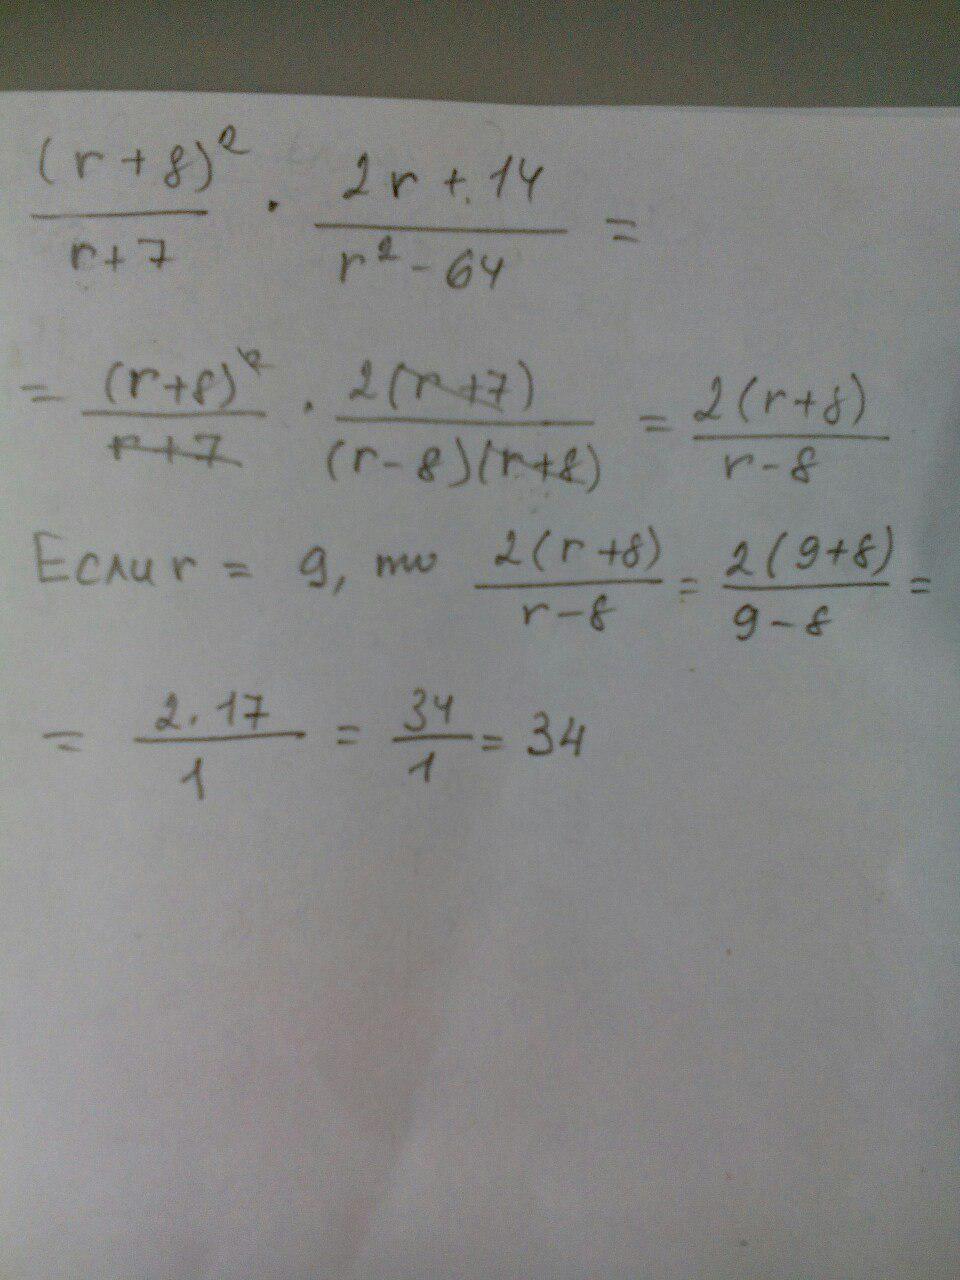 (r+8)² / r+7 · 2r+14 / r²-64 =
= (r+8)² / r+7 · 2(r+7) / (r-8)(r+8) = 2(r+8) / r-8
Если r = 9, то 2(r+8) / r-8 = 2(9+8) / 9-8 =
= 2·17 / 1 = 34 / 1 = 34